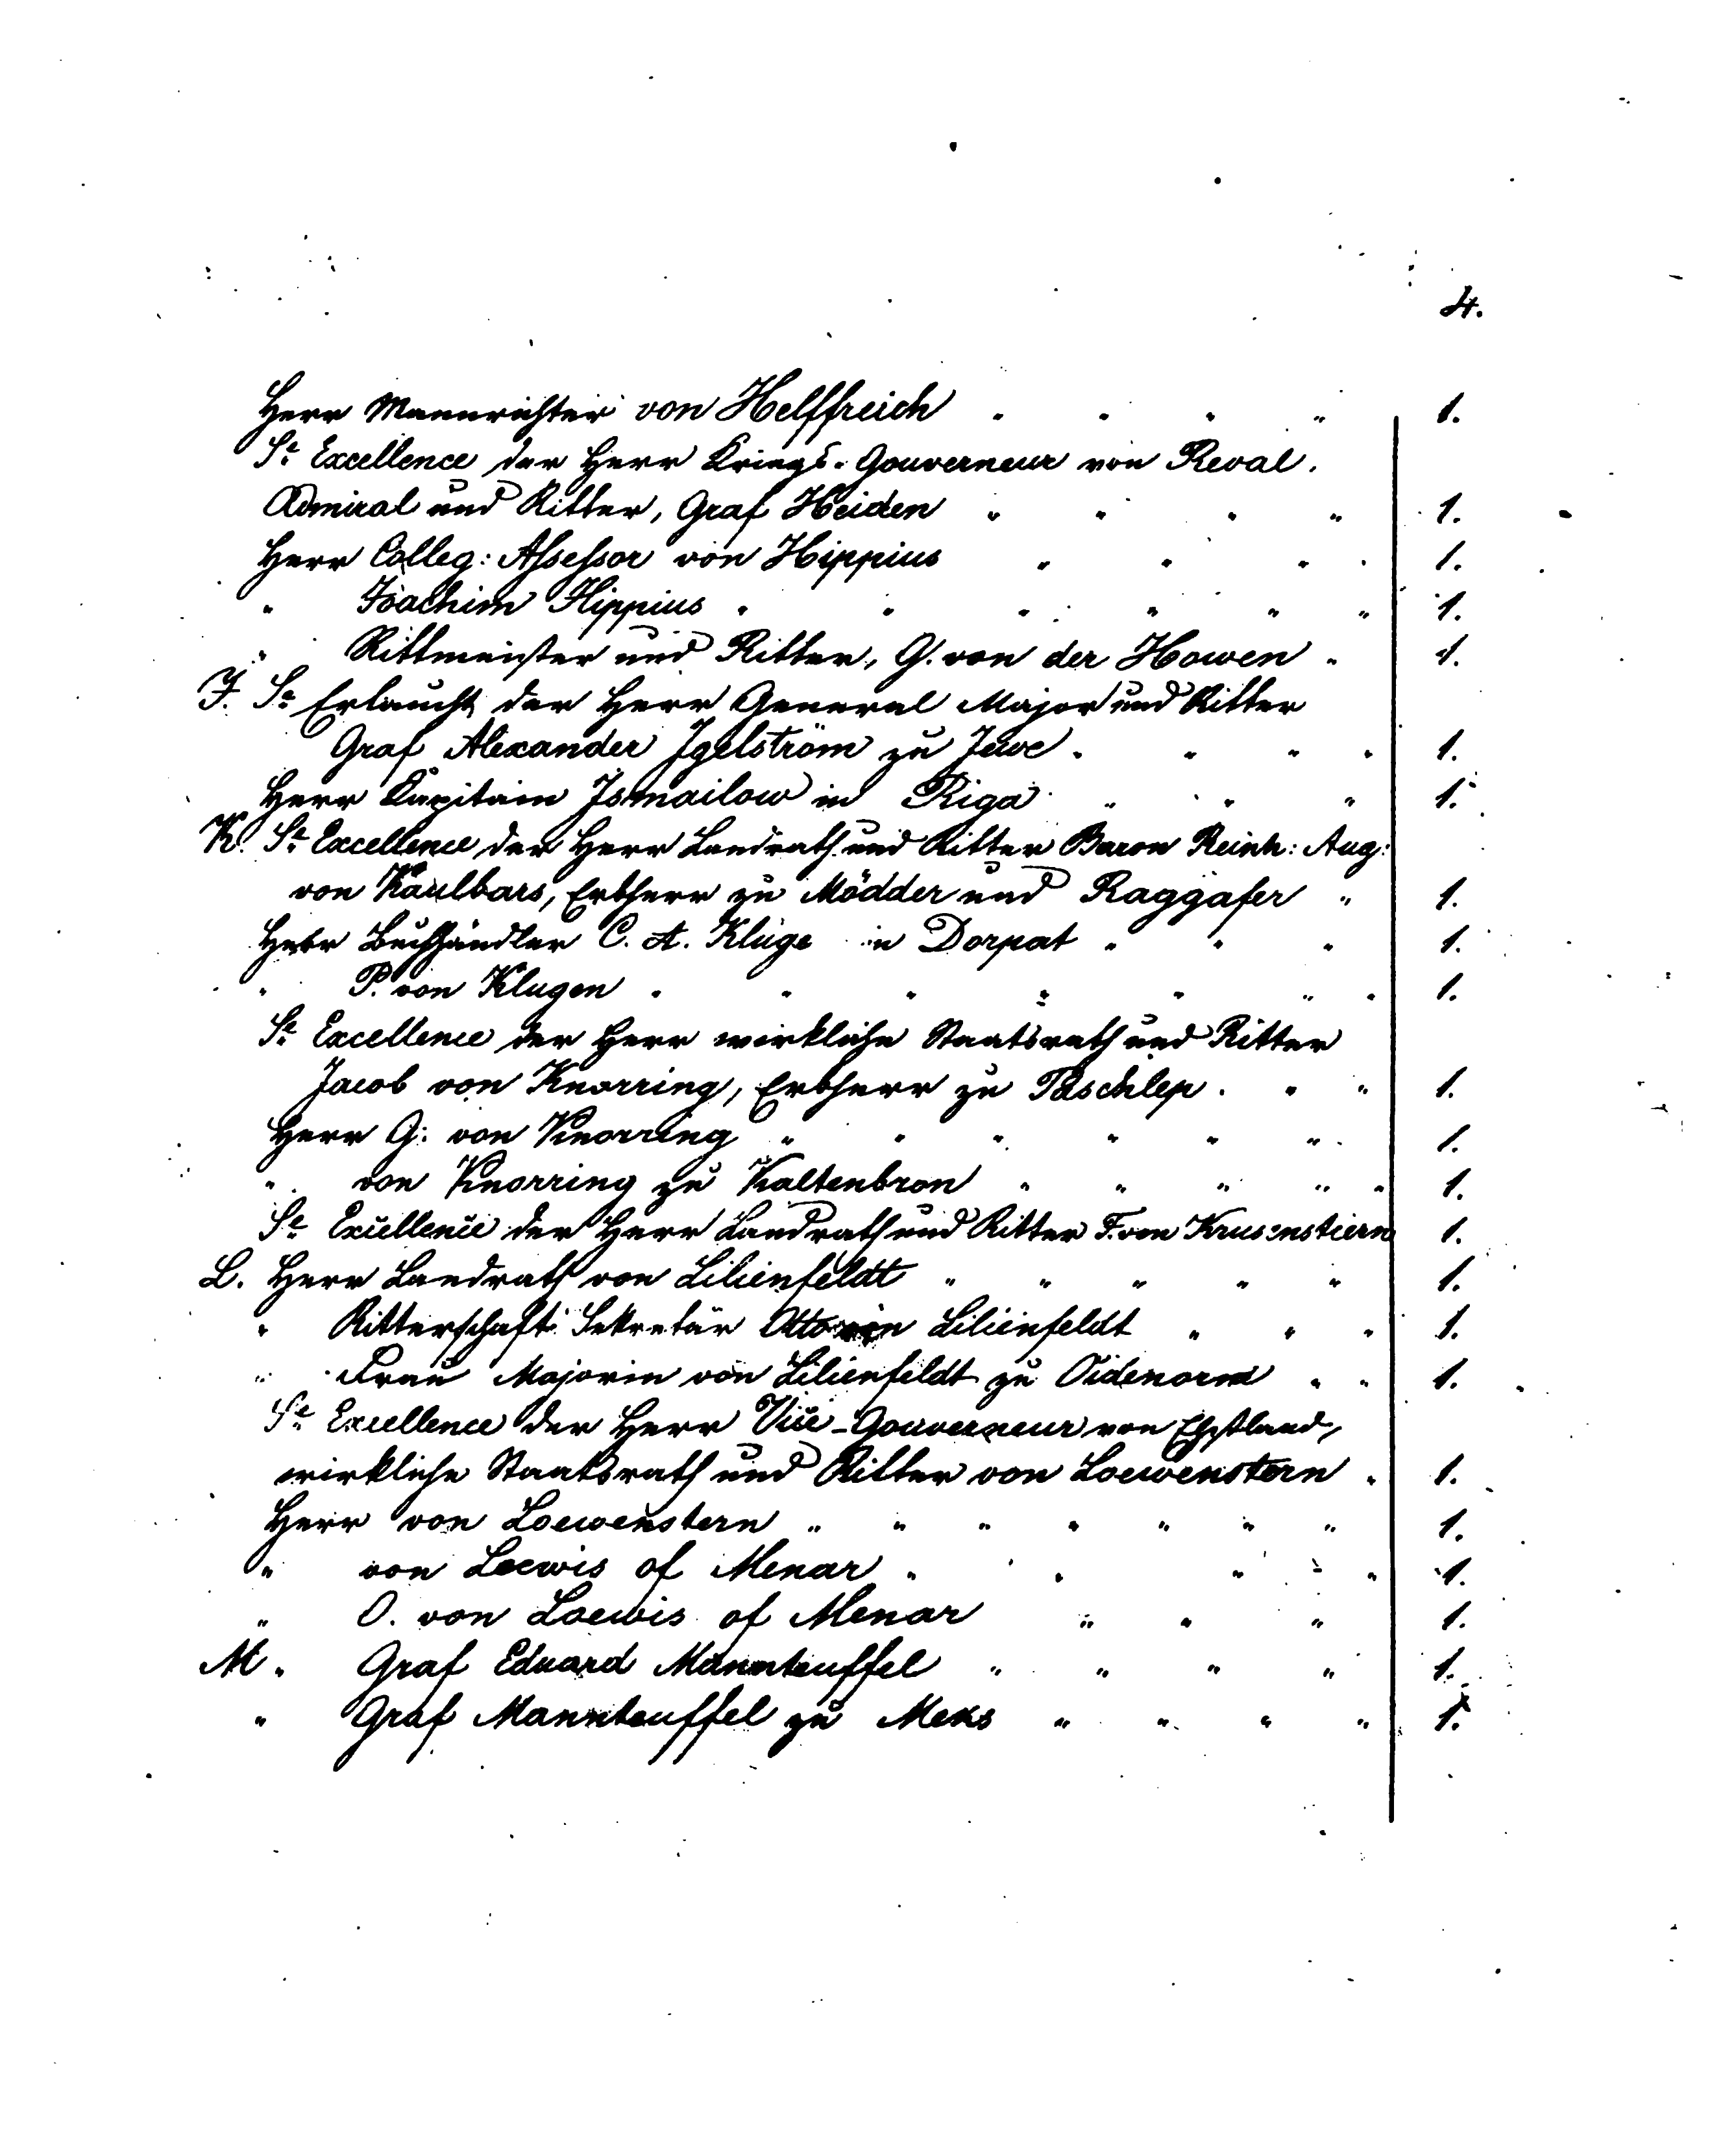 4.
Herr Mannrichter von Helffreich " " " " 1.
Se Excellence der Herr Kriegs-Gouverneur von Reval.
Admiral und Ritter, Graf Heiden " " " " 1.
Herr Colleg: Assessor von Hippius " " " " 1.
" Joachim Hippius " " " " " " 1.
" Rittmeister und Ritter, G. von der Howen " 1.
J. Se Erlaucht der Herr General Major und Ritter
Graf Alexander Jgelström zu Jewe " " " " 1.
Herr Kapitain Jsmailow in Riga " " " 1.
K. Se Excellence der Herr Landrath und Ritter Baron Reinh: Aug:
von Kaulbars, Erbherr zu Mödder und Raggafer " 1.
Herr Buchhändler C. A. Kluge in Dorpat " " " 1.
" P. von Klugen " " " " " " " 1.
Se Excellence der Herr wirkliche Staatsrath und Ritter
Jacob von Knorring, Erbherr zu Paschlep " " " 1.
Herr G: von Knorring " " " " " " 1.
" von Knorring zu Kaltenbron " " " " " 1.
Se Excellence der Herr Landrath und Ritter F. von Krusenstiern 1.
L. Herr Landrath von Lilienfeldt " " " " " 1.
" Ritterschaft Sekretär Otto von Lilienfeldt " " " 1.
" Frau Majorin von Lilienfeldt zu Oidenorm " " 1.
Se Excellence der Herr Vice-Gouverneur von Ehstland,
wirkliche Staatsrath und Ritter von Loewenstern " 1.
Herr von Loewenstern " " " " " " " 1.
" von Loewis of Menar " " " " " 1.
" O. von Loewis of Menar " " " 1.
M " Graf Eduard Mannteuffel " " " " 1.
" Graf Mannteuffel zu Meks " " " " 1.